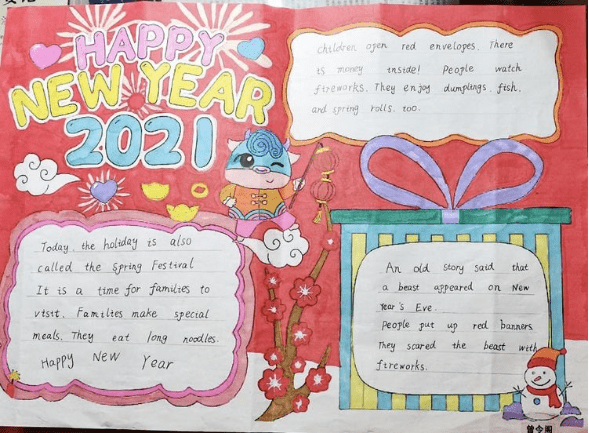 HAPPY
NEW YEAR
2021
children open red envelopes. There
is money inside! People watch
fireworks. They enjoy dumplings, fish,
and spring rolls, too.
Today, the holiday is also
called the Spring Festival
It is a time for families to
visit. Families make special
meals. They eat long noodles.
Happy New Year
An old story said that
a beast appeared on New
Year's Eve.
People put up red banners
They scared the beast with
fireworks.